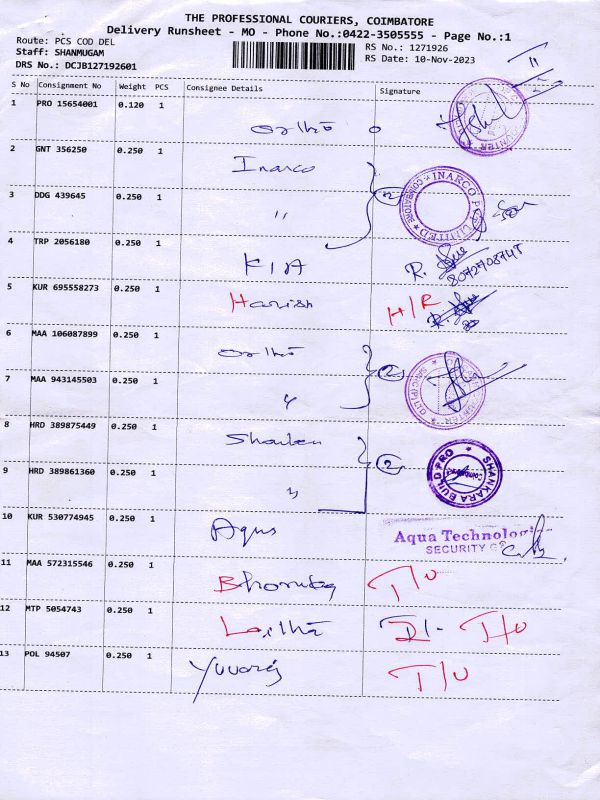 THE PROFESSIONAL COURIERS, COIMBATORE
Delivery Runsheet - MO - Phone No.:0422-3505555 - Page No.:1
Route: PCS COD DEL RS No.: 1271926
Staff: SHANMUGAM RS Date: 10-Nov-2023
DRS No.: DCJB127192601
S No Consignment No Weight PCS Consignee Details Signature
1 PRO 15654001 0.120 1
2 GNT 356250 0.250 1 Inarco
3 DDG 439645 0.250 1 "
INARCO
LIMITED
4 TRP 2056180 0.250 1 KIA R.
8072708745
5 KUR 695558273 0.250 1 Harish H/R
6 MAA 106087899 0.250 1
7 MAA 943145503 0.250 1 "
8 HRD 389875449 0.250 1
9 HRD 389861360 0.250 1 "
SHANKARA BUILD PRO
10 KUR 530774945 0.250 1 Aqua
Aqua Technolo
SECURITY
11 MAA 572315546 0.250 1
12 MTP 5054743 0.250 1
13 POL 94507 0.250 1 Yuvaraj